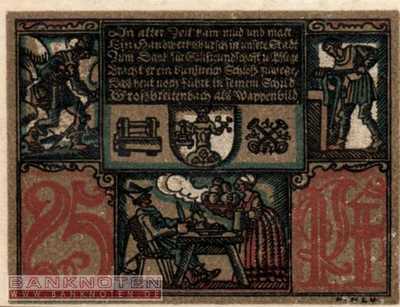 In alter Zeit kam müd und matt
Ein Handwerksbursch in unsre Stadt
Zum Dank für Gastfreundschaft u. Pflege
Bracht er ein kunstreich Schloß zuwege,
Das heut noch führt in seinem Schild
Großbreitenbach als Wappenbild
25 Pf
BANKNOTEN
WWW.BANKNOTEN.DE